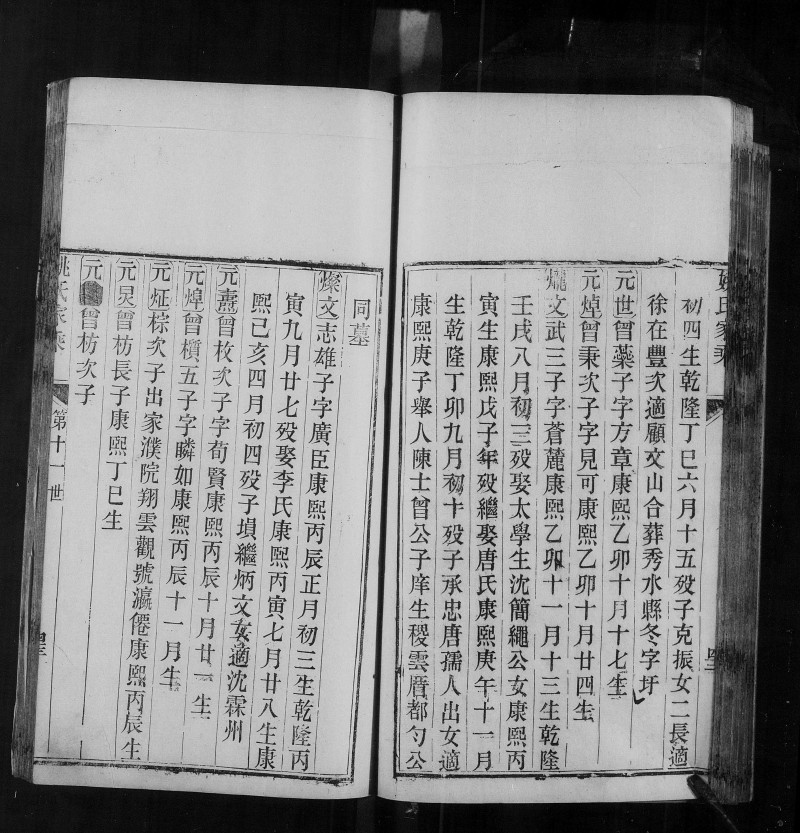 姚氏家乘
初四生乾隆丁巳六月十五歿子克振女二長適
徐在豐次適顧文山合葬秀水縣冬字圩
元世曾藥子字方章康熙乙卯十月十七生
元焯曾秉次子字見可康熙乙卯十月廿四生
文武三子字蒼麓康熙乙卯十一月十三生乾隆
壬戌八月初三歿娶太學生沈簡繩公女康熙丙
寅生康熙戊子年歿繼娶唐氏康熙庚午十一月
生乾隆丁卯九月初十歿子承忠唐孺人出女適
康熙庚子舉人陳士曾公子庠生稷雲厝都勺公
同墓
燦文志雄子字廣臣康熙丙辰正月初三生乾隆丙
寅九月廿七歿娶李氏康熙丙寅七月廿八生康
熙己亥四月初四歿子塤繼炳文女適沈霖州
元燾曾枚次子字荀賢康熙丙辰十月廿一生
元煒曾櫝五子字瞵如康熙丙辰十一月生
元炡棕次子出家濮院翔雲觀號瀛僊康熙丙辰生
元炅曾枋長子康熙丁巳生
元曾枋次子
姚氏家乘
第十一世